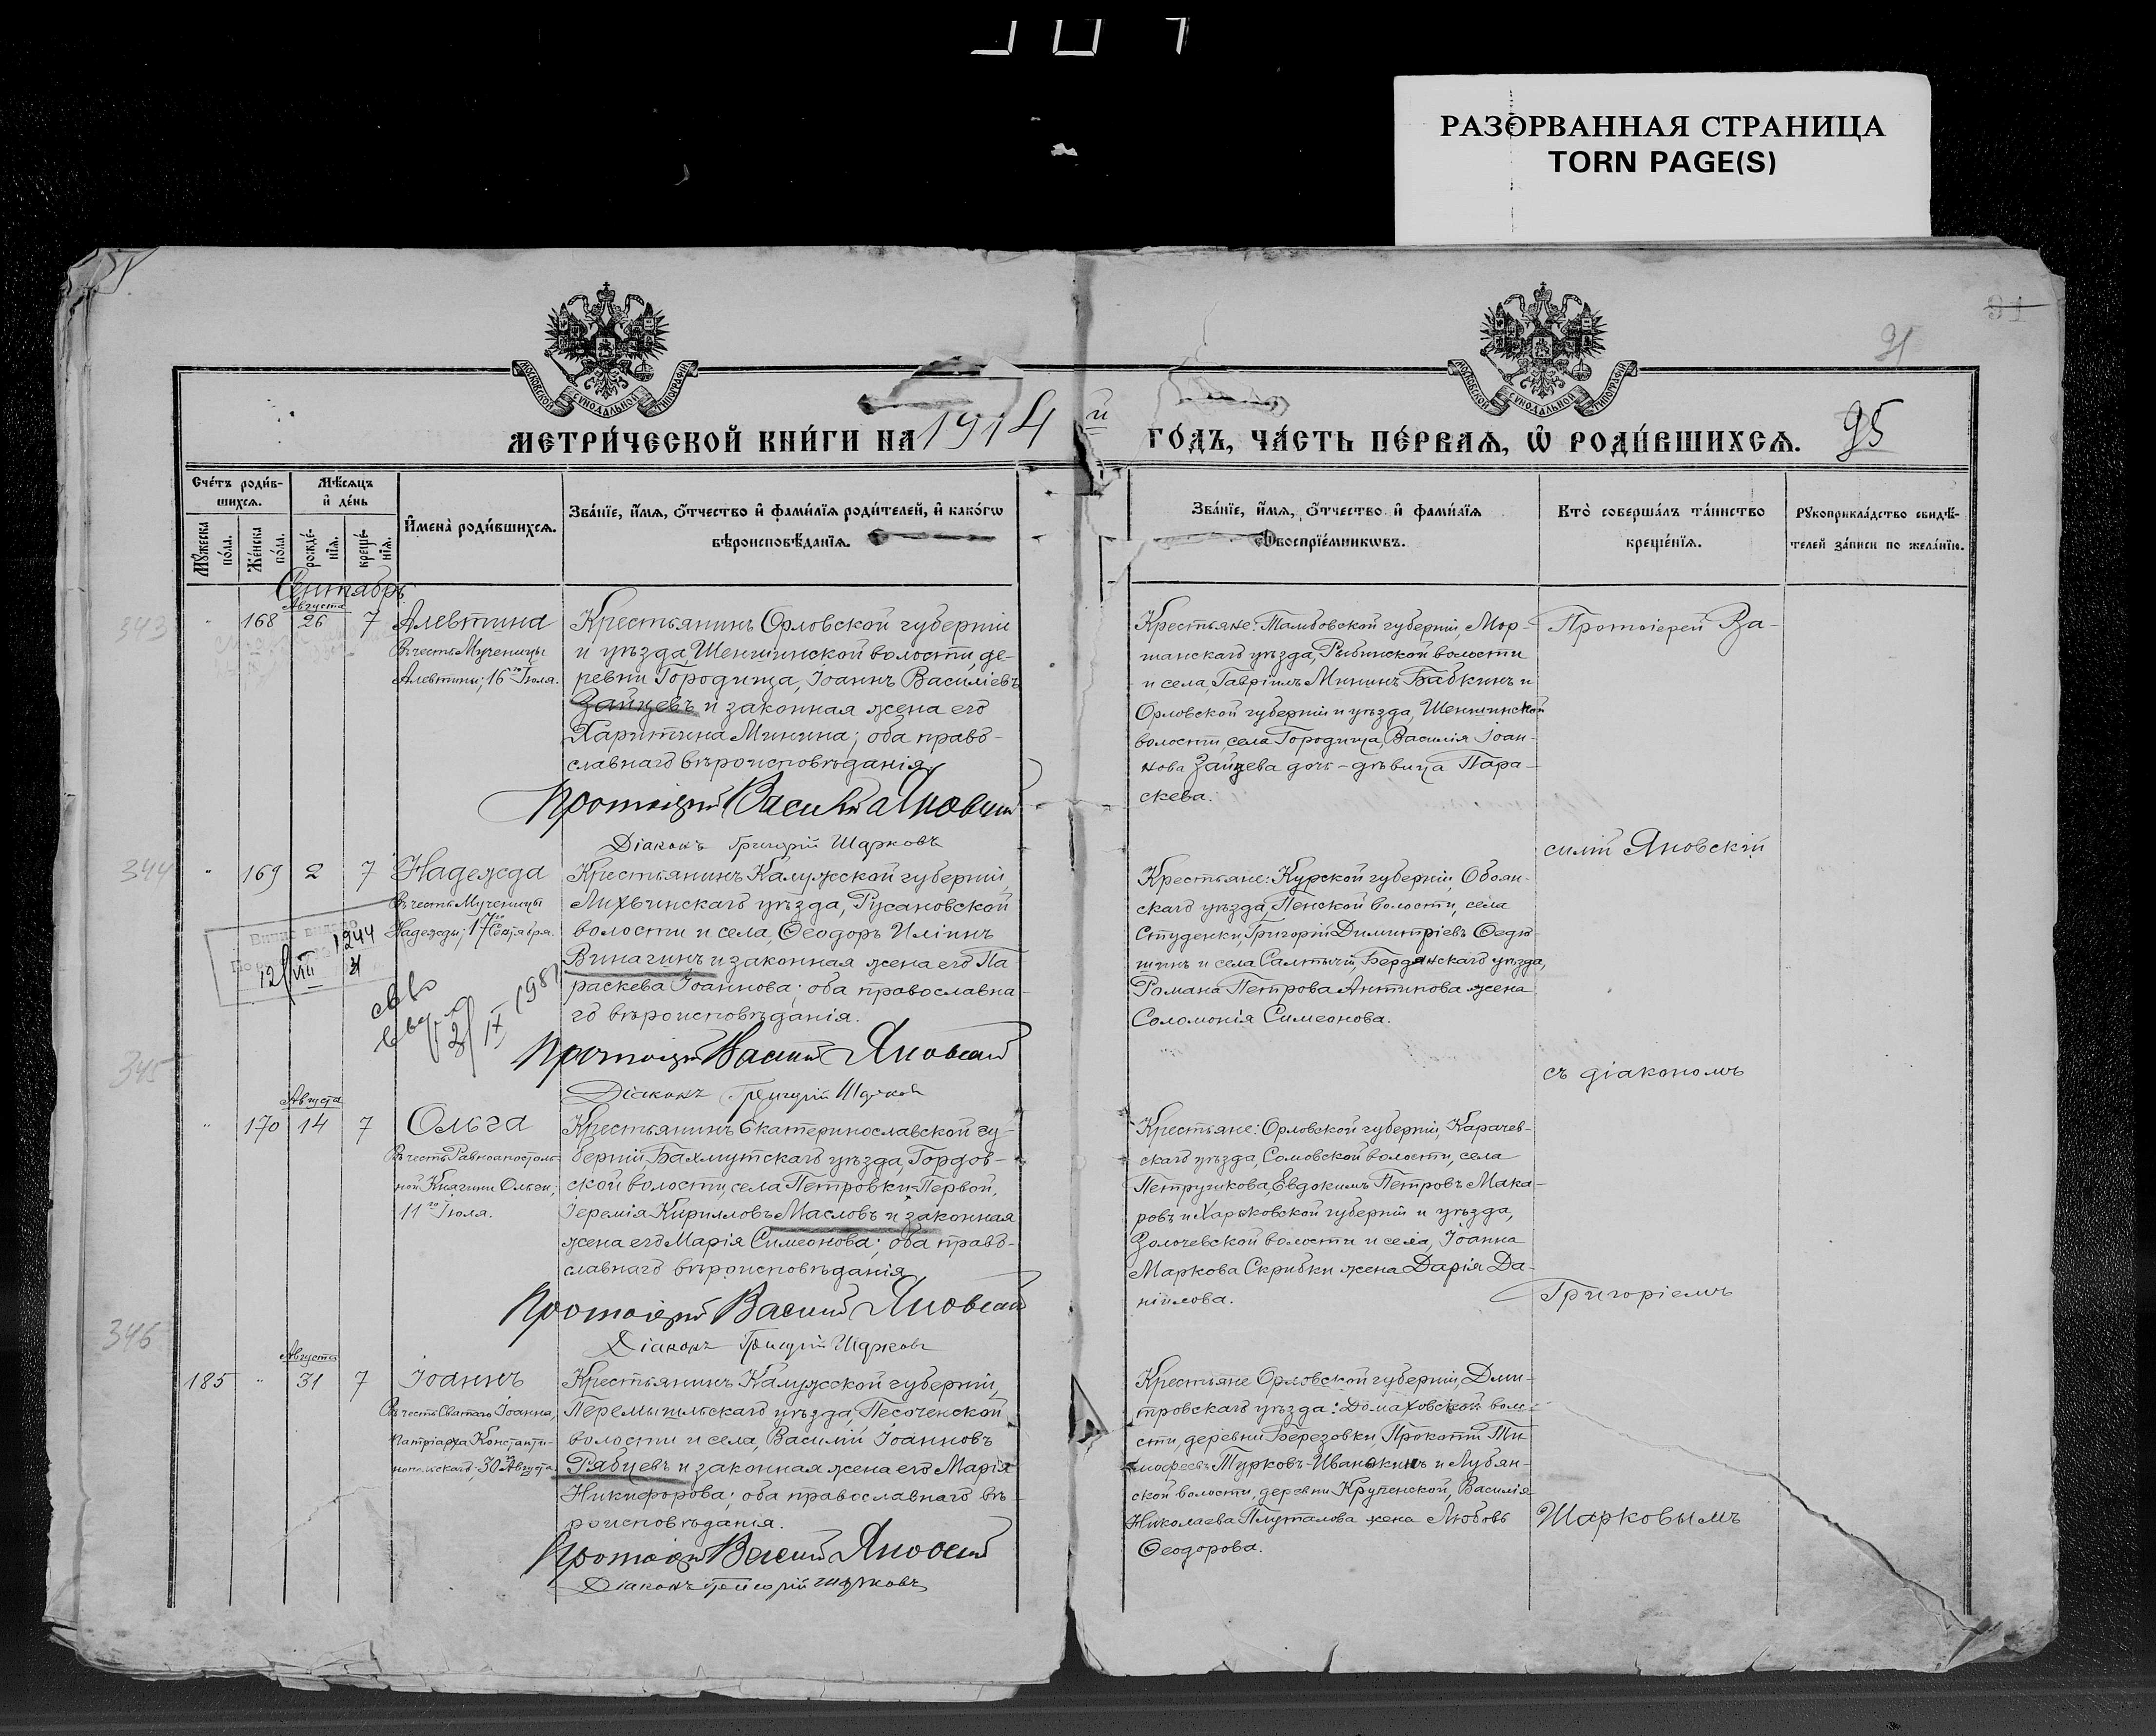 РАЗОРВАННАЯ СТРАНИЦА
TORN PAGE(S)
91
91
МОСКОВСКОЙ СУНОДАЛЬНОЙ ТИПОГРАФІИ
МОСКОВСКОЙ СУНОДАЛЬНОЙ ТИПОГРАФІИ
МЕТРИ́ЧЕСКОЙ КНИ́ГИ НА 1914 й ГО́ДЪ, ЧА́СТЬ ПЕ́РВАѦ, Ѡ҆ РОДИ́ВШИХСѦ. 95
Сче́тъ роди́в-
шихся.
Мꙋжеска по́ла.
Же́нска по́ла.
Мѣ́сяцъ
и҆ де́нь
рожде́-
нїѧ.
креще́-
нїѧ.
И҆мена̀ роди́вшихсѧ.
Зва́нїе, и҆́мѧ, ѻ҆́тчество и҆ фами́лїѧ роди́телей, и҆ како́гѡ
вѣроисповѣ́данїѧ.
Зва́нїе, и҆́мѧ, ѻ҆́тчество и҆ фами́лїѧ
восприе́мникѡвъ.
Кто̀ соверша́лъ та́инство
креще́нїѧ.
Рꙋкоприкла́дство свидѣ́-
телей за́писи по жела́нїю.
Сентябрь
343
Августа
168 26 7 Алевтина
Въ честь Мученицы
Алевтины, 16го Іюля.
Крестьянинъ Орловской губерніи
и уѣзда, Шеншинской волости, де-
ревни Городища, Іоаннъ Василіевъ
Зайцевъ и законная жена его
Харитина Минина; оба право-
славнаго вѣроисповѣданія.
Протоіерей Василій Яновскій
Діаконъ Григорій Шарковъ
Крестьяне: Тамбовской губерніи, Мор-
шанскаго уѣзда, Рыбинской волости
и села, Гавріилъ Мининъ Бабкинъ и
Орловской губерніи и уѣзда, Шеншинской
волости, села Городища, Василія Іоан-
нова Зайцева дочь – дѣвица Пара-
скева.
Протоіерей Ва-
силій Яновскій
344
169 2 7 Надежда
Въ честь Мученицы
Надежды, 17го Сентября.
12/VIII 1944
2/IX 1987
Крестьянинъ Калужской губерніи,
Лихвинскаго уѣзда, Русановской
волости и села, Ѳеодоръ Иліинъ
Винагинъ и законная жена его Па-
раскева Іоаннова; оба православна-
го вѣроисповѣданія.
Протоіерей Василій Яновскій
Діаконъ Григорій Шарковъ
Крестьяне: Курской губерніи, Обоян-
скаго уѣзда, Пенской волости, села
Студенки, Григорій Димитріевъ Ѳедю-
шинъ и села Салтычіи, Бердянскаго уѣзда,
Романа Петрова Антипова жена
Соломонія Симеонова.
съ діакономъ
345
Августа
170 14 7 Ольга
Въ честь Равноапостоль-
ной Княгини Ольги,
11го Іюля.
Крестьянинъ Екатеринославской гу-
берніи, Бахмутскаго уѣзда, Гордов-
ской волости, села Петровки-Первой,
Іеремія Кирилловъ Масловъ и законная
жена его Марія Симеонова; оба право-
славнаго вѣроисповѣданія.
Протоіерей Василій Яновскій
Діаконъ Григорій Шарковъ
Крестьяне: Орловской губерніи, Карачев-
скаго уѣзда, Сомовской волости, села
Петрушкова, Евдокимъ Петровъ Мака-
ровъ и Харьковской губерніи и уѣзда,
Золочевской волости и села, Іоанна
Маркова Скрибки жена Дарія Да-
ніилова.
Григоріемъ
346
Августа
185 31 7 Іоаннъ
Въ честь Святаго Іоанна,
Патріарха Константи-
нопольскаго, 30го Августа.
Крестьянинъ Калужской губерніи,
Перемышльскаго уѣзда, Песоченской
волости и села, Василій Іоанновъ
Рябцевъ и законная жена его Марія
Никифорова; оба православнаго вѣ-
роисповѣданія.
Протоіерей Василій Яновскій
Діаконъ Григорій Шарковъ
Крестьяне Орловской губерніи, Дми-
тровскаго уѣзда: Домаховской воло-
сти, деревни Березовки, Прокопій Ти-
моѳеевъ Турковъ-Иванькинъ и Лубян-
ской волости, деревни Крупенской, Василія
Николаева Плуталова жена Любовь
Ѳеодорова.
Шарковымъ